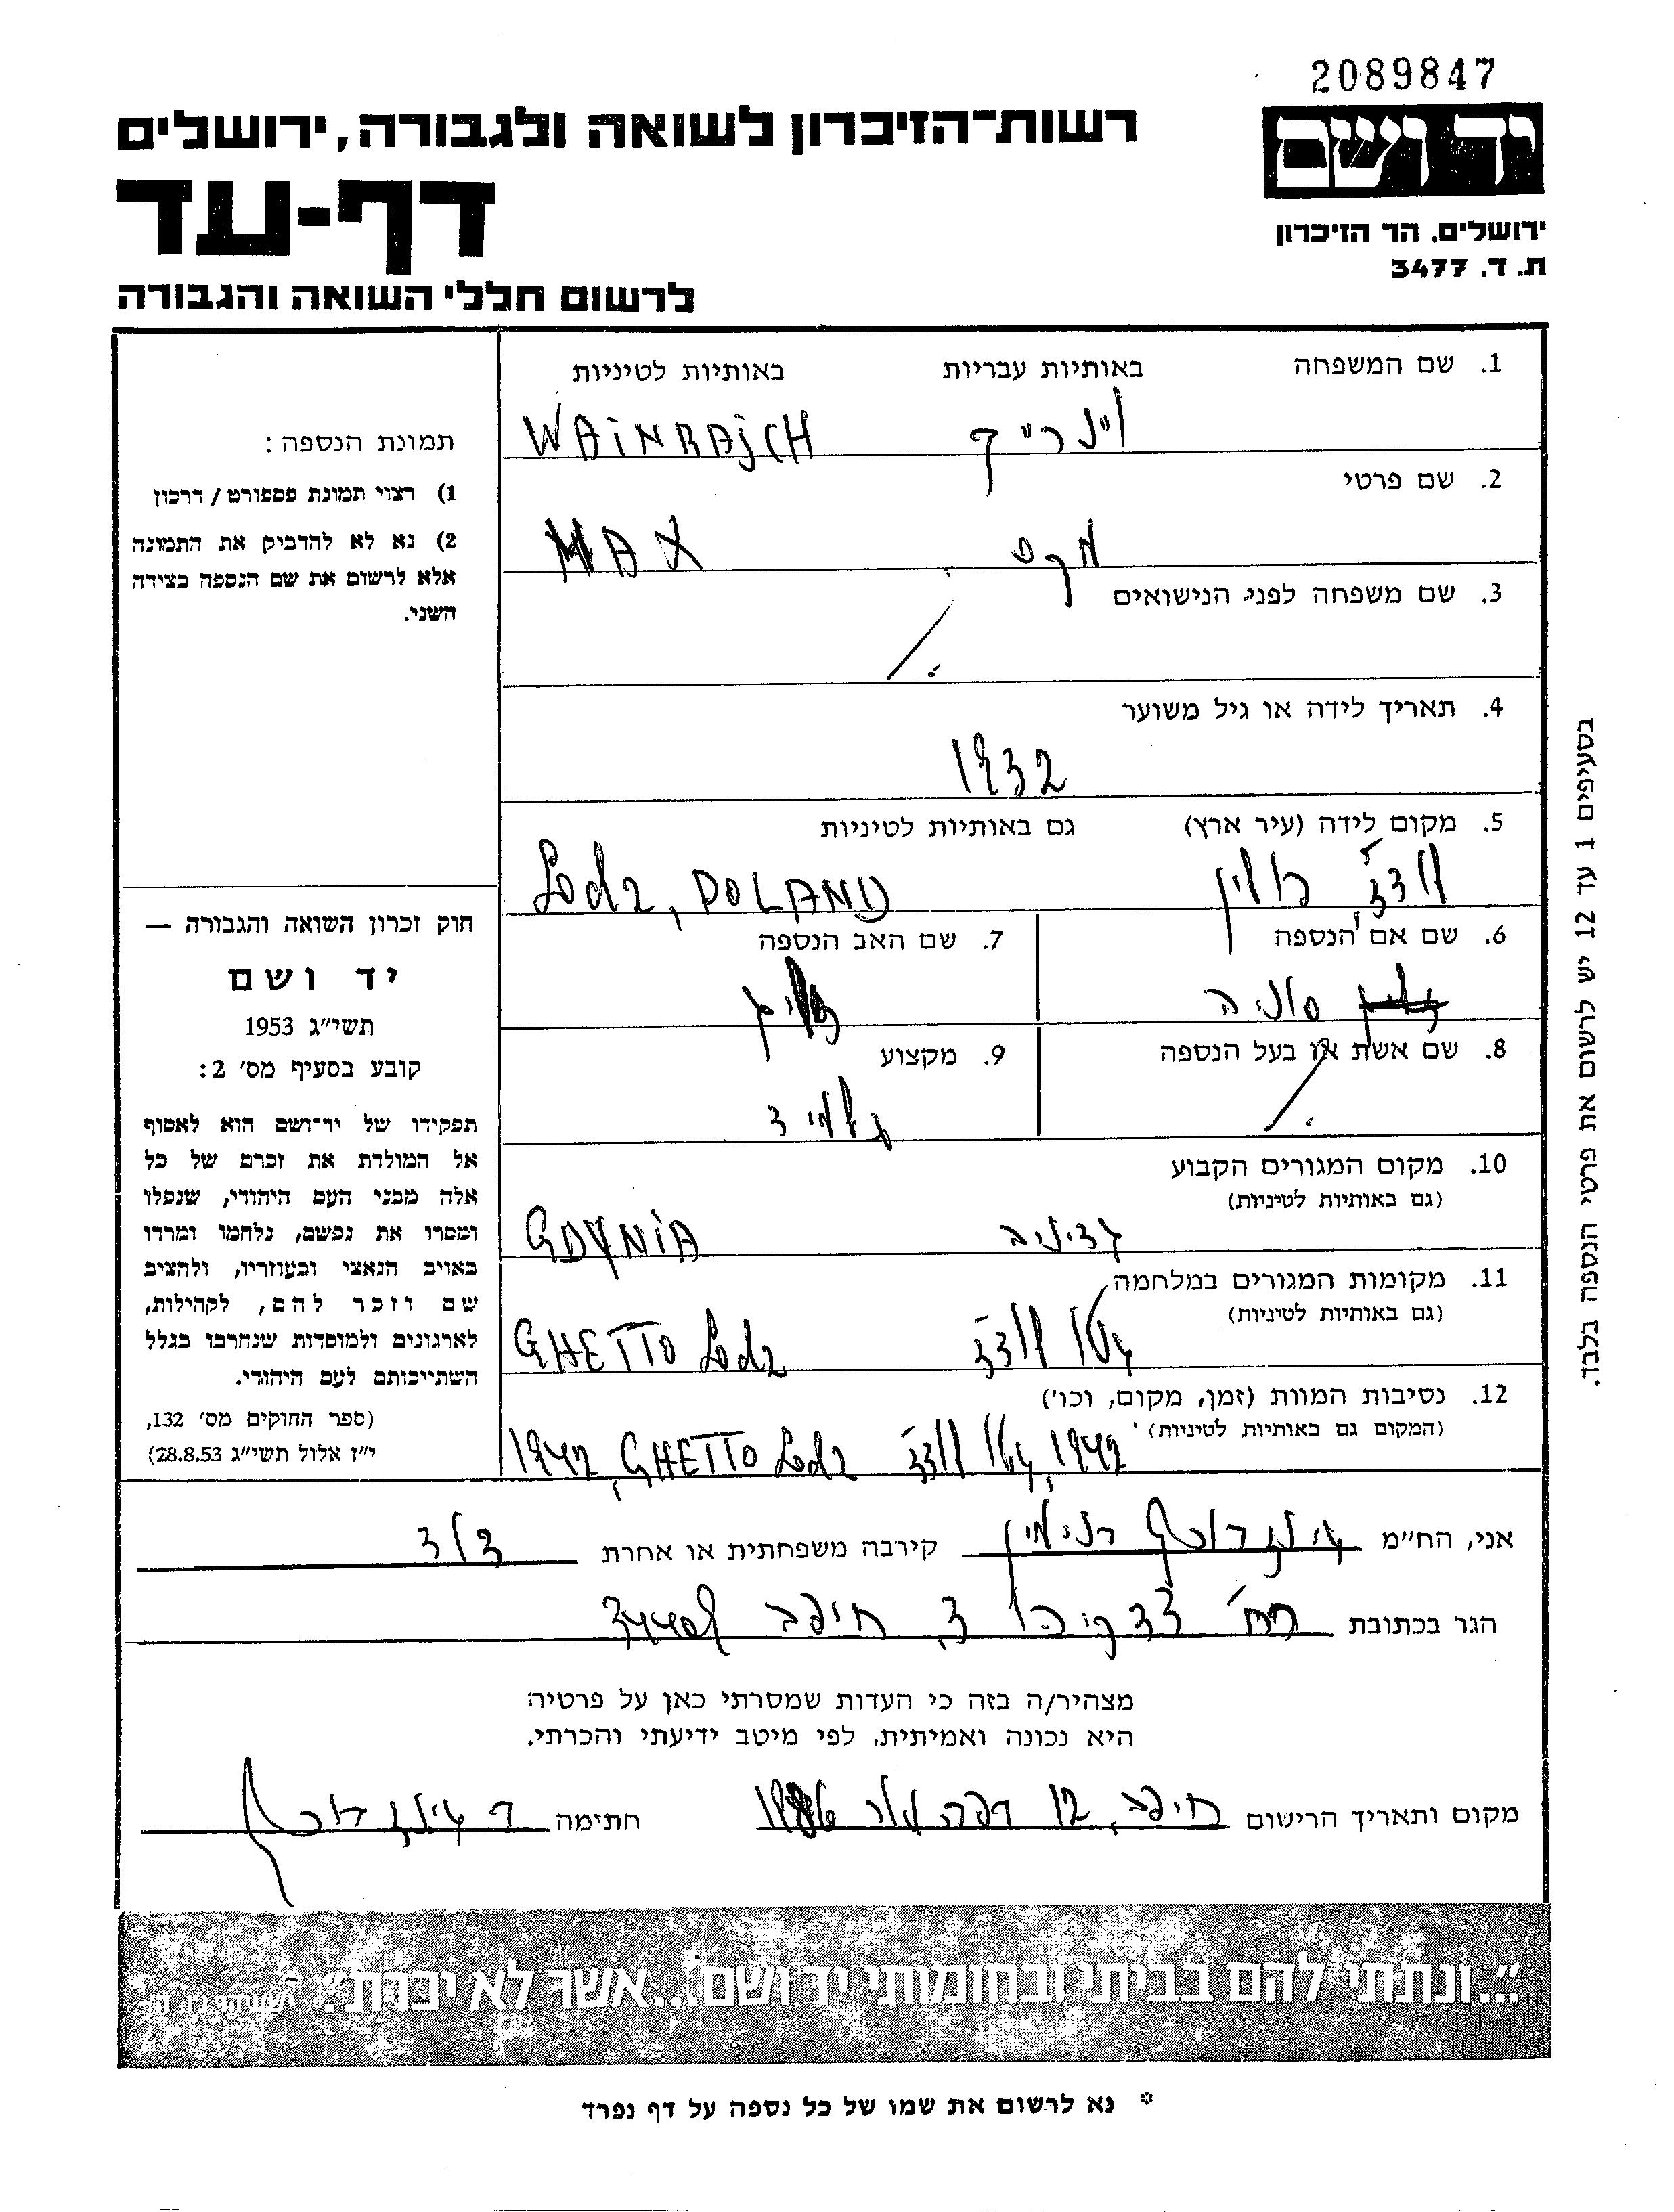 2089847
יד ושם
רשות־הזיכרון לשואה ולגבורה, ירושלים
דף-עד
לרשום חללי השואה והגבורה
ירושלים, הר הזיכרון
ת. ד. 3477
1. שם המשפחה באותיות עבריות באותיות לטיניות
וינרייך WAINRAJCH
2. שם פרטי
מקס MAX
3. שם משפחה לפני הנישואים
4. תאריך לידה או גיל משוער
1932
5. מקום לידה (עיר ארץ) גם באותיות לטיניות
לודז' פולין Lodz, POLAND
6. שם אם הנספה 7. שם האב הנספה
סוניה
8. שם אשת או בעל הנספה 9. מקצוע
תלמיד
10. מקום המגורים הקבוע
(גם באותיות לטיניות)
גדיניה GDYNIA
11. מקומות המגורים במלחמה
(גם באותיות לטיניות)
גטו לודז' GHETTO Lodz
12. נסיבות המוות (זמן, מקום, וכו')
(המקום גם באותיות לטיניות)
1942, גטו לודז' 1942, GHETTO Lodz
תמונת הנספה:
1) רצוי תמונת פספורט/דרכון
2) נא לא להדביק את התמונה
אלא לרשום את שם הנספה בצידה
השני.
חוק זכרון השואה והגבורה —
יד ושם
תשי"ג 1953
קובע בסעיף מס' 2:
תפקידו של יד־ושם הוא לאסוף
אל המולדת את זכרם של כל
אלה מבני העם היהודי, שנפלו
ומסרו את נפשם, נלחמו ומרדו
באויב הנאצי ובעוזריו, ולהציב
שם וזכר להם, לקהילות,
לארגונים ולמוסדות שנחרבו בגלל
השתייכותם לעם היהודי.
(ספר החוקים מס' 132,
י"ז אלול תשי"ג 28.8.53)
בסעיפים 1 עד 12 יש לרשום את פרטי הנספה בלבד.
אני, הח"מ בנימין קירבה משפחתית או אחרת דוד
הגר בכתובת רח' 3, חיפה
מצהיר/ה בזה כי העדות שמסרתי כאן על פרטיה
היא נכונה ואמיתית, לפי מיטב ידיעתי והכרתי.
מקום ותאריך הרישום חיפה, 12 1986 חתימה
"...ונתתי להם בביתי ובחומותי יד ושם...אשר לא יכרת". ישעיהו נו, ה'
* נא לרשום את שמו של כל נספה על דף נפרד